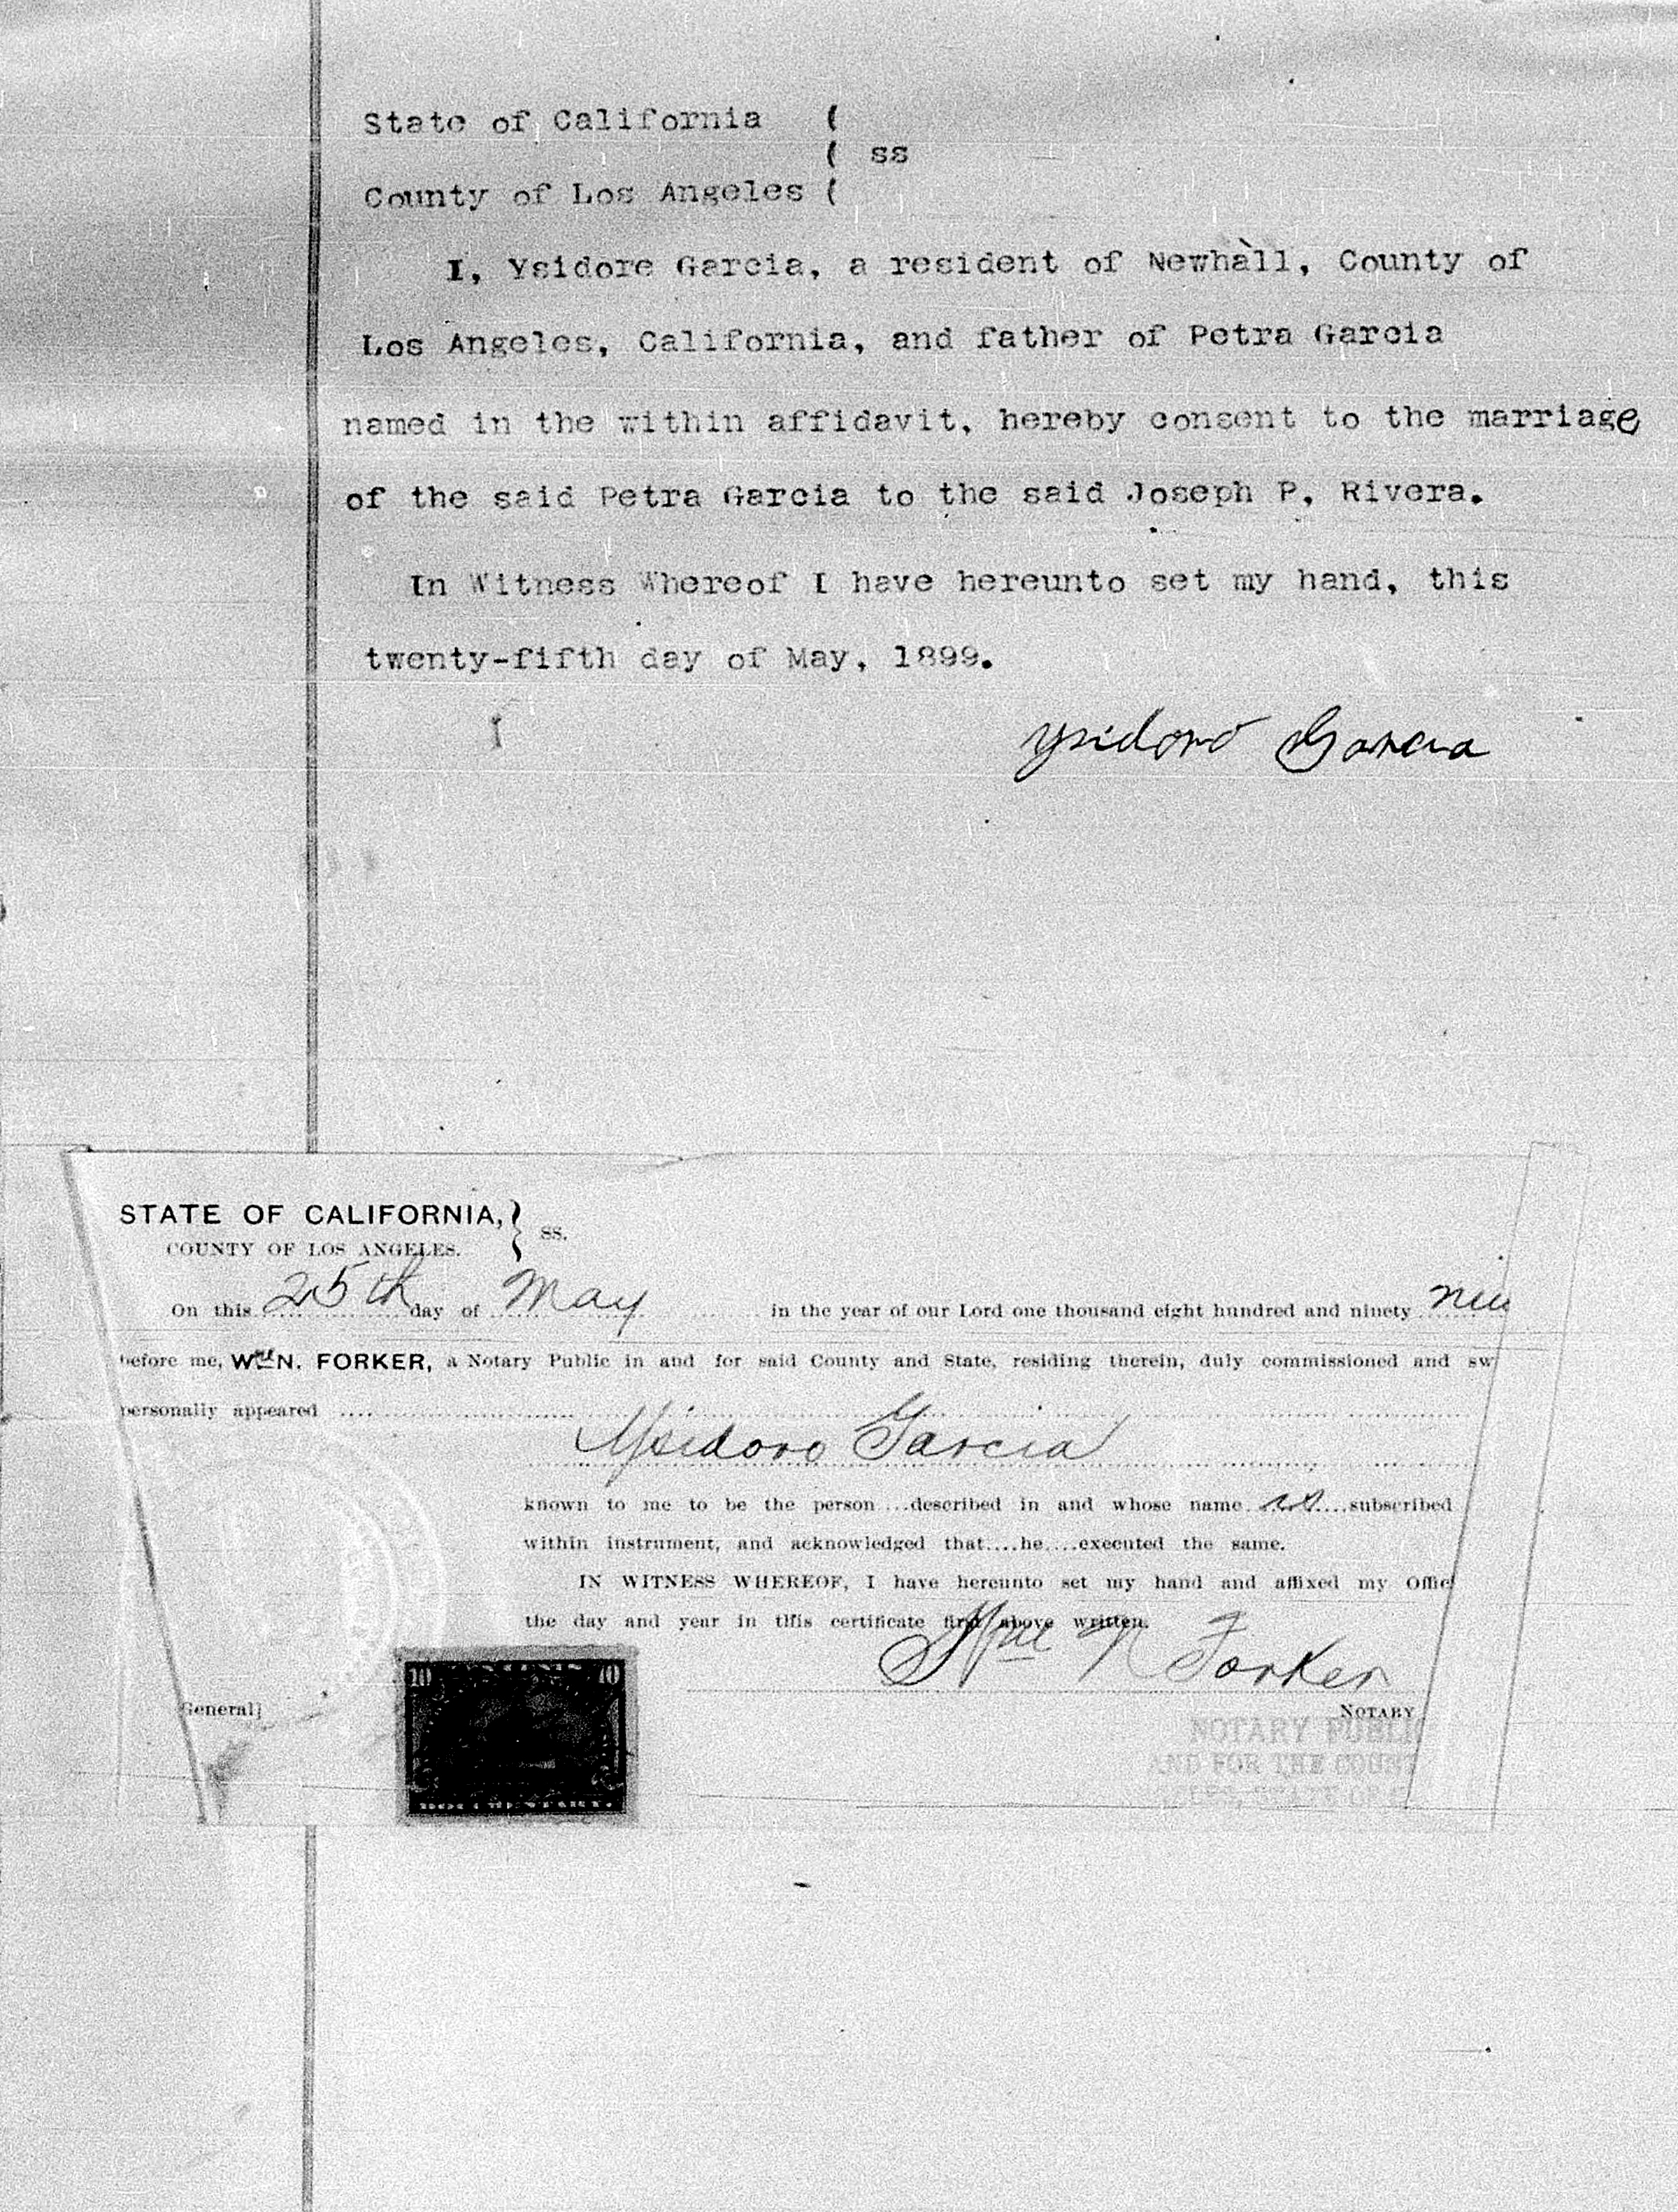 State of California (
( ss
County of Los Angeles (
I, Ysidore Garcia, a resident of Newhall, County of
Los Angeles, California, and father of Petra Garcia
named in the within affidavit, hereby consent to the marriage
of the said Petra Garcia to the said Joseph P, Rivera.
In Witness Whereof I have hereunto set my hand, this
twenty-fifth day of May, 1899.
Ysidoro Garcia
STATE OF CALIFORNIA, } ss.
COUNTY OF LOS ANGELES.
On this 25th day of May in the year of our Lord one thousand eight hundred and ninety
before me, Wm N. FORKER, a Notary Public in and for said County and State, residing therein, duly commissioned and sw
personally appeared
Ysidoro Garcia
known to me to be the person....described in and whose name is....subscribed
within instrument, and acknowledged that....he....executed the same.
IN WITNESS WHEREOF, I have hereunto set my hand and affixed my Offic
the day and year in this certificate first above written.
Wm N Forker
General] NOTARY
10 10
NOTARY PUBLIC
AND FOR THE COUNT
ELES, STATE OF C